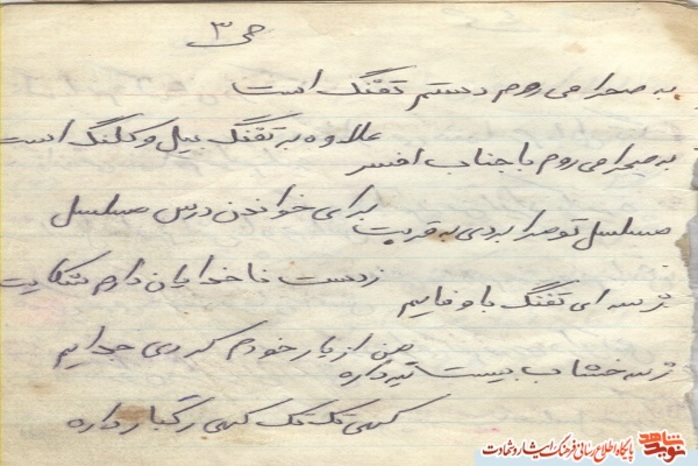 ص ۳
به صحرا می روم دستم تفنگ است
علاوه به تفنگ بیل و کلنگ است
به صحرا می روم با جناب افسر
برای خواندن درس مسلسل
مسلسل تو مرا بردی به غربت
زدست ناخدایان دارم شکایت
ژ سه ای تفنگ با وفایم
من از یار خودم کردی جدایم
ژ سه خشاب بیست تیر داره
گهی تک تک گهی رگبار داره
نوید شاهد
پایگاه اطلاع رسانی فرهنگ ایثار و شهادت